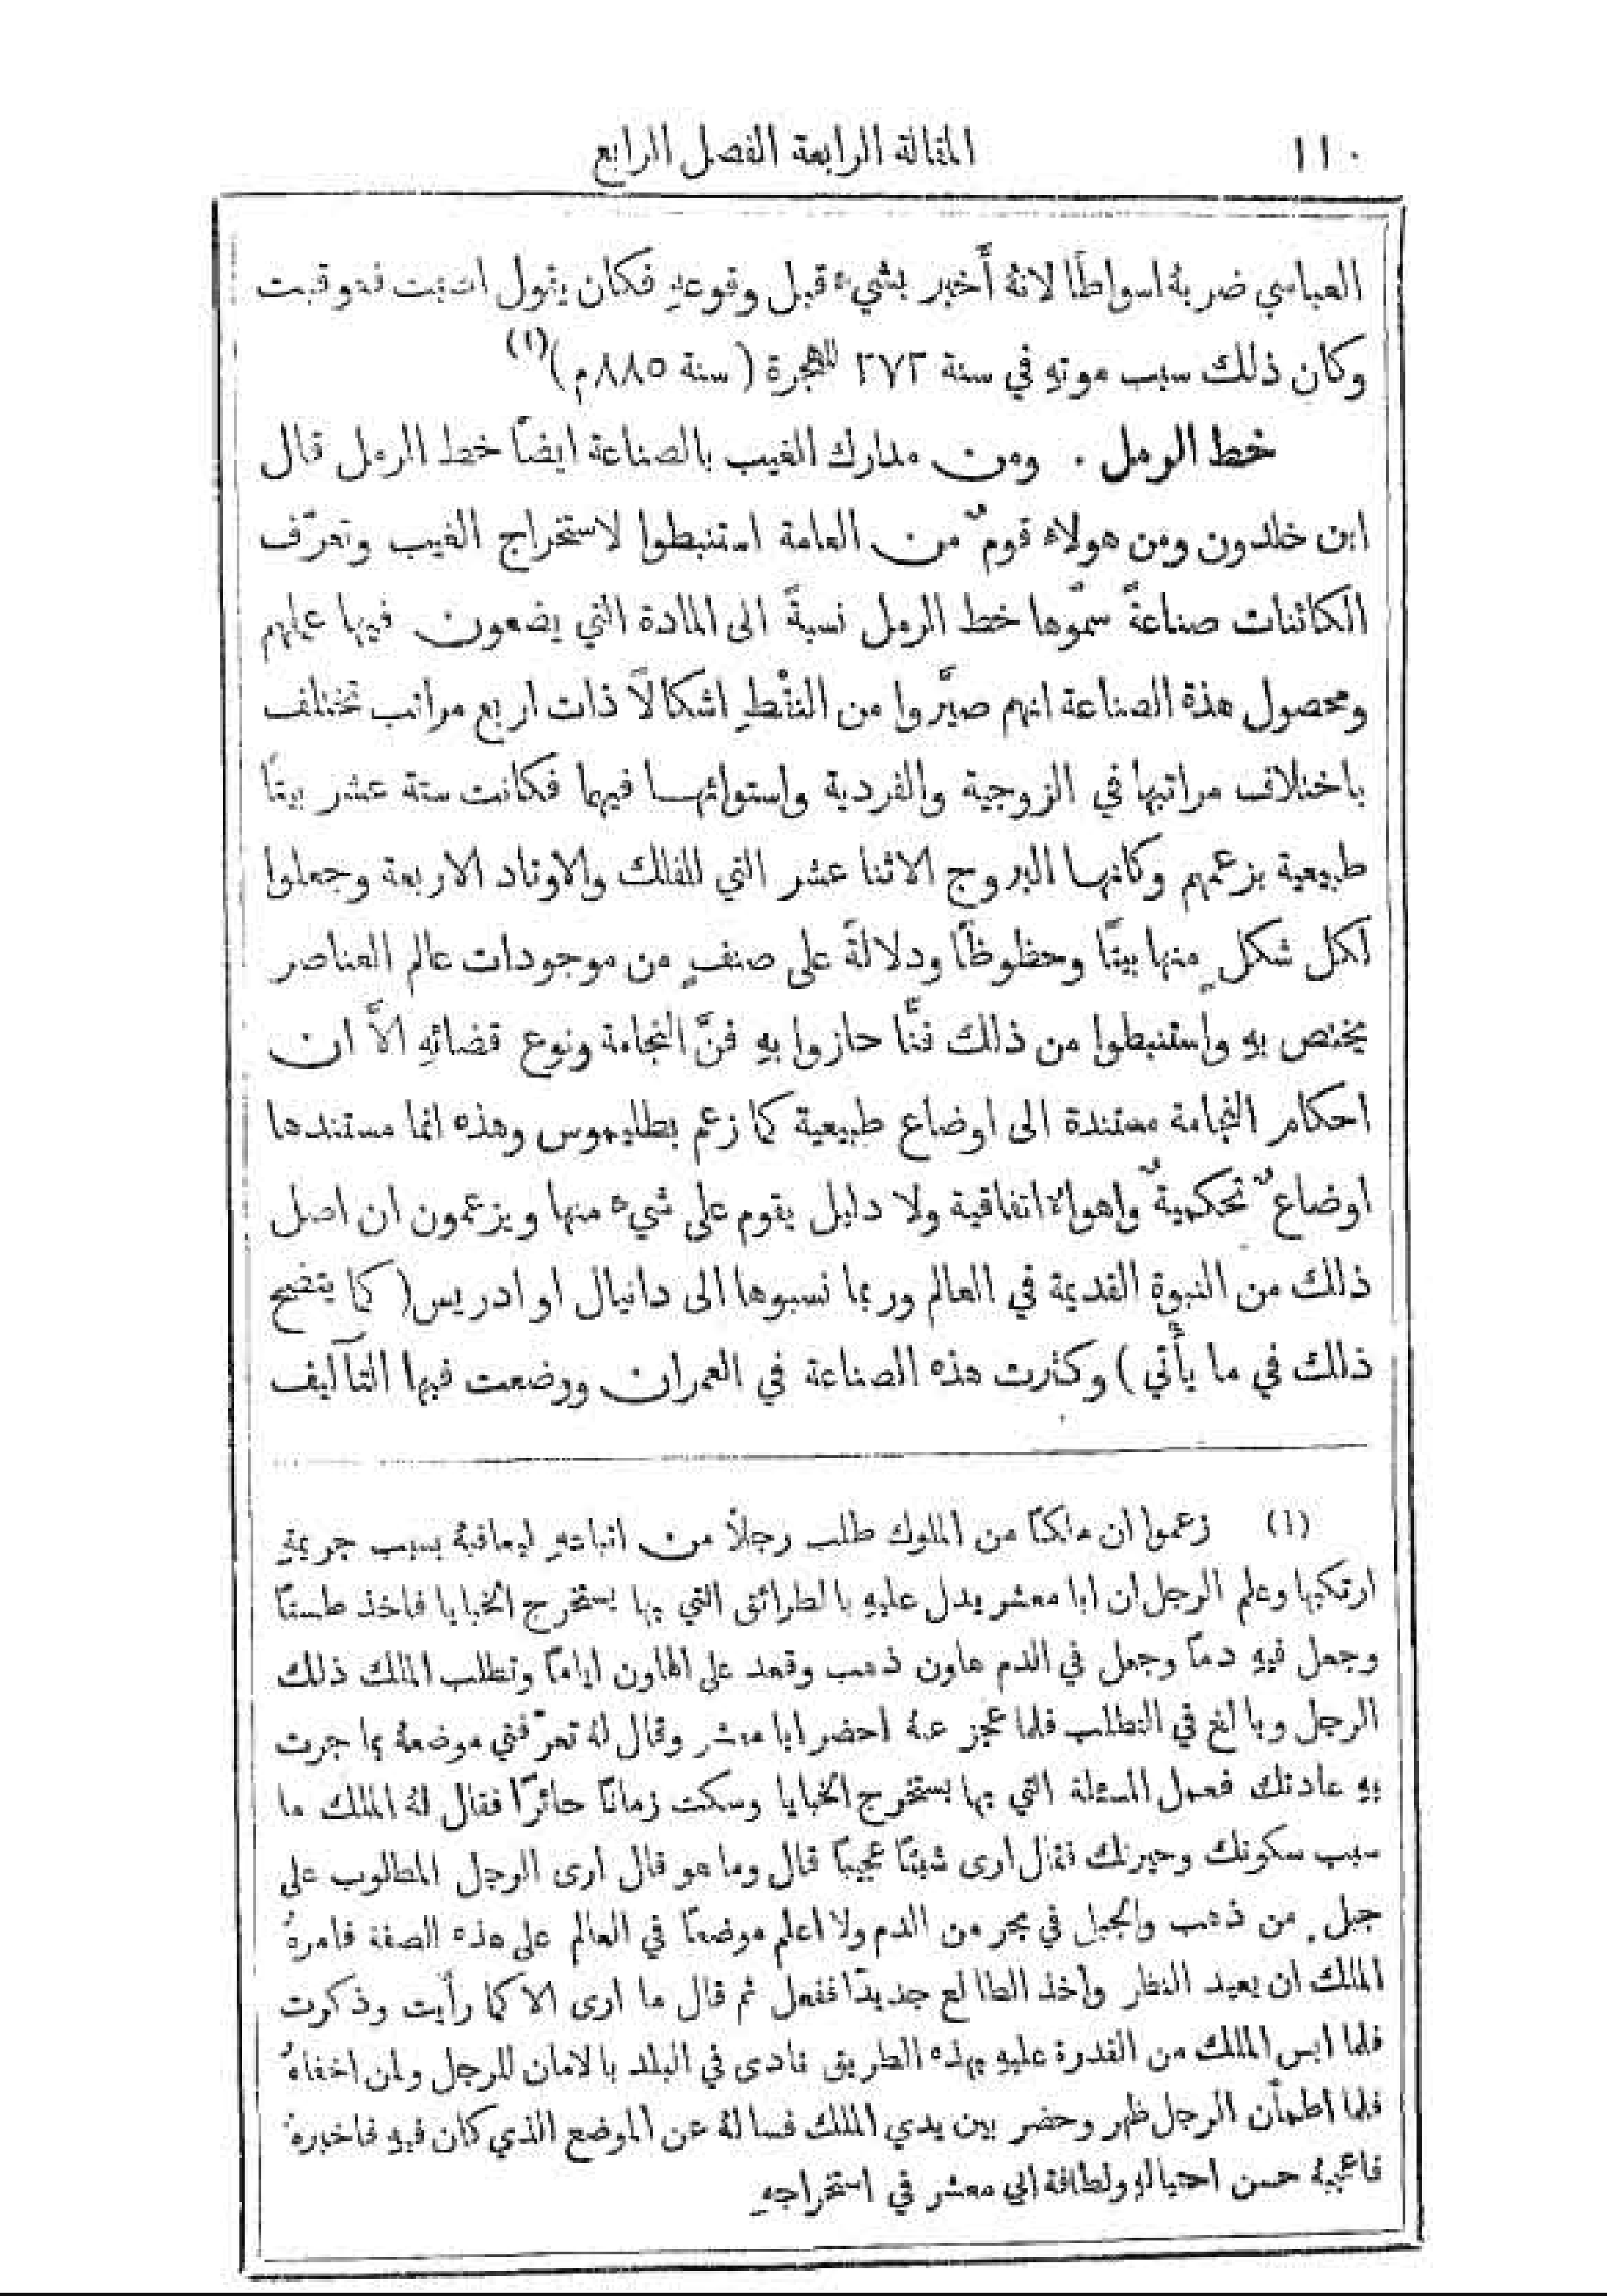 ١١٠ المقالة الرابعة الفصل الرابع
العباسي ضربهُ اسواطًا لانهُ أخبر بشيء قبل وقوعهِ فكان يقول اصبت فعوقبت
وكان ذلك سبب موتهِ في سنة ٢٧٢ للهجرة (سنة ٨٨٥م)(١)
خط الرمل . ومن مدارك الغيب بالصناعة ايضًا خط الرمل قال
ابن خلدون ومن هولاء قومٌ من العامة استنبطوا لاستخراج الغيب وتعرّف
الكائنات صناعةً سمّوها خط الرمل نسبةً الى المادة التي يضعون فيها عملهم
ومحصول هذة الصناعة انهم صيَّروا من النقْطِ اشكالاً ذات اربع مراتب تختلف
باختلاف مراتبها في الزوجية والفردية واستوائها فيهما فكانت ستة عشر بيتًا
طبيعية بزعمهم وكانها البروج الاثنا عشر التي للفلك والاوتاد الاربعة وجعلوا
لكل شكلٍ منها بيتًا وحظوظًا ودلالةً على صنفٍ من موجودات عالم العناصر
يختص بهِ واستنبطوا من ذلك فنًّا حازوا بهِ فنَّ النجامة ونوع قضائهِ الاَّ ان
احكام النجامة مستندة الى اوضاع طبيعية كما زعم بطليموس وهذه انما مستندها
اوضاعٌ تحكميةٌ واهواءٌ اتفاقية ولا دليل يقوم على شيء منها ويزعمون ان اصل
ذلك من النبوة القديمة في العالم وربما نسبوها الى دانيال او ادريس (كما يتضح
ذلك في ما يأتي) وكثرت هذه الصناعة في العمران ووضعت فيها التآليف
(١) زعموا ان ملكًا من الملوك طلب رجلاً من اتباعهِ ليعاقبهُ بسبب جريمةٍ
ارتكبها وعلم الرجل ان ابا معشر يدل عليهِ بالطرائق التي بها يستخرج الخبايا فاخذ طستًا
وجعل فيهِ دمًا وجعل في الدم هاون ذهب وقعد على الهاون ايامًا وتطلب الملك ذلك
الرجل وبالغ في التطلب فلما عجز عنهُ احضر ابا معشر وقال لهُ تعرّفني موضعهُ بما جرت
بهِ عادتك فعمل المسئلة التي بها يستخرج الخبايا وسكت زمانًا حائرًا فقال لهُ الملك ما
سبب سكوتك وحيرتك فقال ارى شيئًا عجيبًا قال وما هو قال ارى الرجل المطلوب على
جبل من ذهب والجبل في بحر من الدم ولا اعلم موضعًا في العالم على هذه الصفة فامرهُ
الملك ان يعيد النظر واخذ الطالع جديدًا ففعل ثم قال ما ارى الا كما رأيت وذكرت
فلما ايس الملك من القدرة عليهِ بهذه الطريق نادى في البلد بالامان للرجل ولمن اخفاهُ
فلما اطمأن الرجل ظهر وحضر بين يدي الملك فسالهُ عن الموضع الذي كان فيهِ فاخبرهُ
فاعجبهُ حسن احتيالهِ ولطافة ابي معشر في استخراجهِ